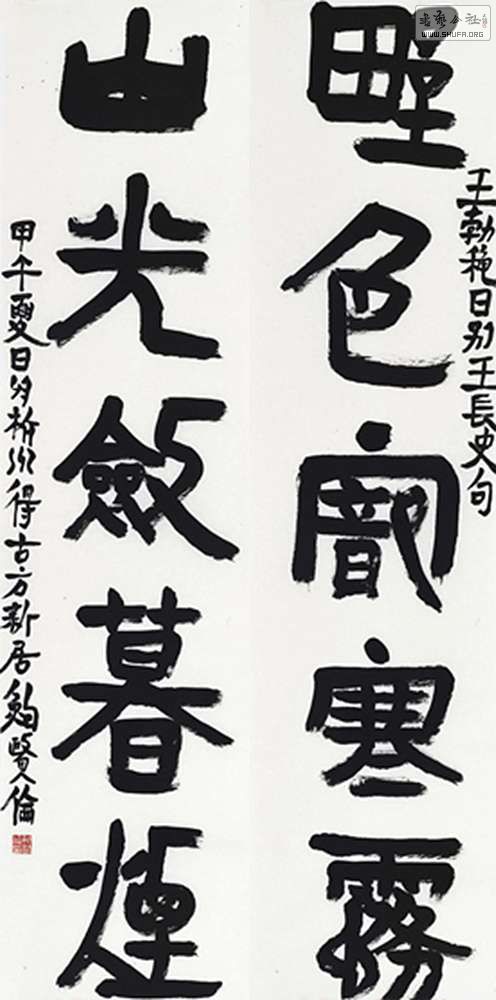 書藝公社
WWW.SHUFA.ORG
野色寒霧
王勃穐日别王長史句
山光斂暮煙
甲午夏日於州得古方新居賢倫